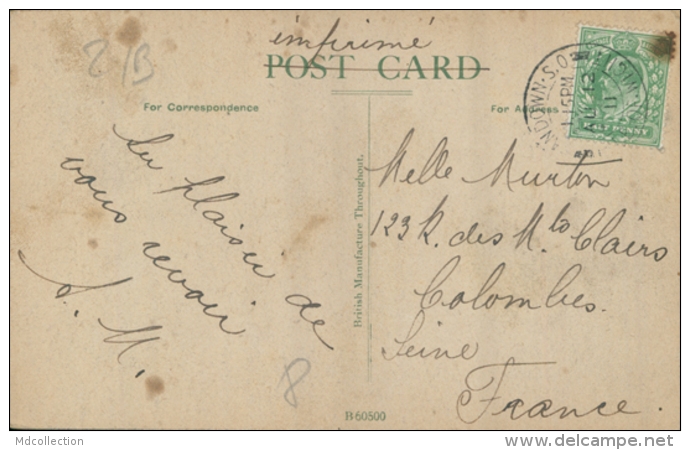 imprimé
POST CARD
For Correspondence
For Address
Au plaisir de
vous revoir
A. M.
British Manufacture Throughout.
Melle Murton
123 R. des Mts Clairs
Colombes.
Seine
France.
HALF PENNY
1 15PM
AU 12
11
B 60500
2/B
8
Mdcollection
delcampe.net